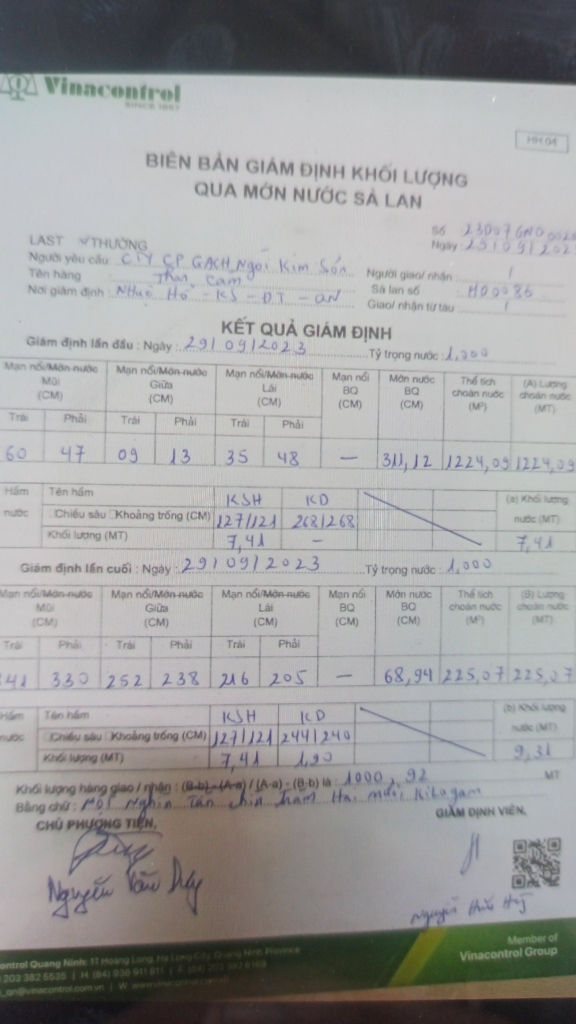 Vinacontrol
SINCE 1957
HH.04
BIÊN BẢN GIÁM ĐỊNH KHỐI LƯỢNG
QUA MỚN NƯỚC SÀ LAN
Số 23007GNĐ
Ngày: 29/09/202
LAST THƯỜNG
Người yêu cầu CTY CP GẠCH Ngói Kim Sơn
Tên hàng Than Cám
Người giao/ nhận /
Nơi giám định: Nhuệ Hổ - KS - ĐT - QN
Sà lan số HD0086
Giao/ nhận từ tàu /
KẾT QUẢ GIÁM ĐỊNH
Giám định lần đầu : Ngày : 29/09/2023 Tỷ trọng nước : 1,000
Mạn nổi/Mớn nước Mũi (CM) Mạn nổi/Mớn nước Giữa (CM) Mạn nổi/Mớn nước Lái (CM) Mạn nổi BQ (CM) Mớn nước BQ (CM) Thể tích choán nước (M³) (A) Lượng choán nước (MT)
Trái Phải Trái Phải Trái Phải
60 47 09 13 35 48 — 311,12 1224,09 1224,09
Hầm nước Tên hầm KSH KD (a) Khối lượng nước (MT)
Chiều sâu Khoảng trống (CM) 127/121 268/268
Khối lượng (MT) 7,41 — 7,41
Giám định lần cuối : Ngày : 29/09/2023 Tỷ trọng nước : 1,000
Mạn nổi/Mớn nước Mũi (CM) Mạn nổi/Mớn nước Giữa (CM) Mạn nổi/Mớn nước Lái (CM) Mạn nổi BQ (CM) Mớn nước BQ (CM) Thể tích choán nước (M³) (B) Lượng choán nước (MT)
Trái Phải Trái Phải Trái Phải
341 330 252 238 216 205 — 68,94 225,07 225,07
Hầm nước Tên hầm KSH KD (b) Khối lượng nước (MT)
Chiều sâu Khoảng trống (CM) 127/121 244/240
Khối lượng (MT) 7,41 1,90 9,31
Khối lượng hàng giao / nhận : (B-b) - (A-a) / (A-a) - (B-b) là : 1000,92 MT
Bằng chữ : Một Nghìn Tấn chín trăm Hai mươi Kilogam
CHỦ PHƯƠNG TIỆN, GIÁM ĐỊNH VIÊN,
Nguyễn Văn
Nguyễn
ontrol Quang Ninh: 11 Hoang Long, Ha Long City, Quang Ninh Province
203 382 5535 | H (84) 936 911 811 | F (84) 203 382 6169
_qn@vinacontrol.com.vn | W www.vinacontrol
Member of
Vinacontrol Group